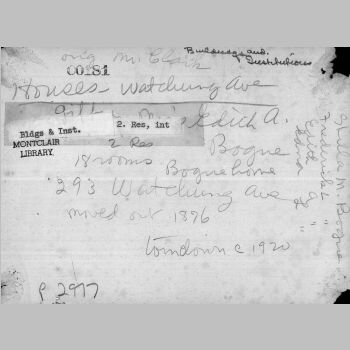 orig M. Clark
Buildings and
Institutions
00181
Houses Watchung Ave
Gift
Edith A.
Bogue
Bldgs & Inst.
2. Res, int
MONTCLAIR
LIBRARY.
2 Res
18 rooms
Bogue home
293 Watchung Ave
moved out 1896
torndown c 1920
p 2977
M. Bogue
Frederick
Edith